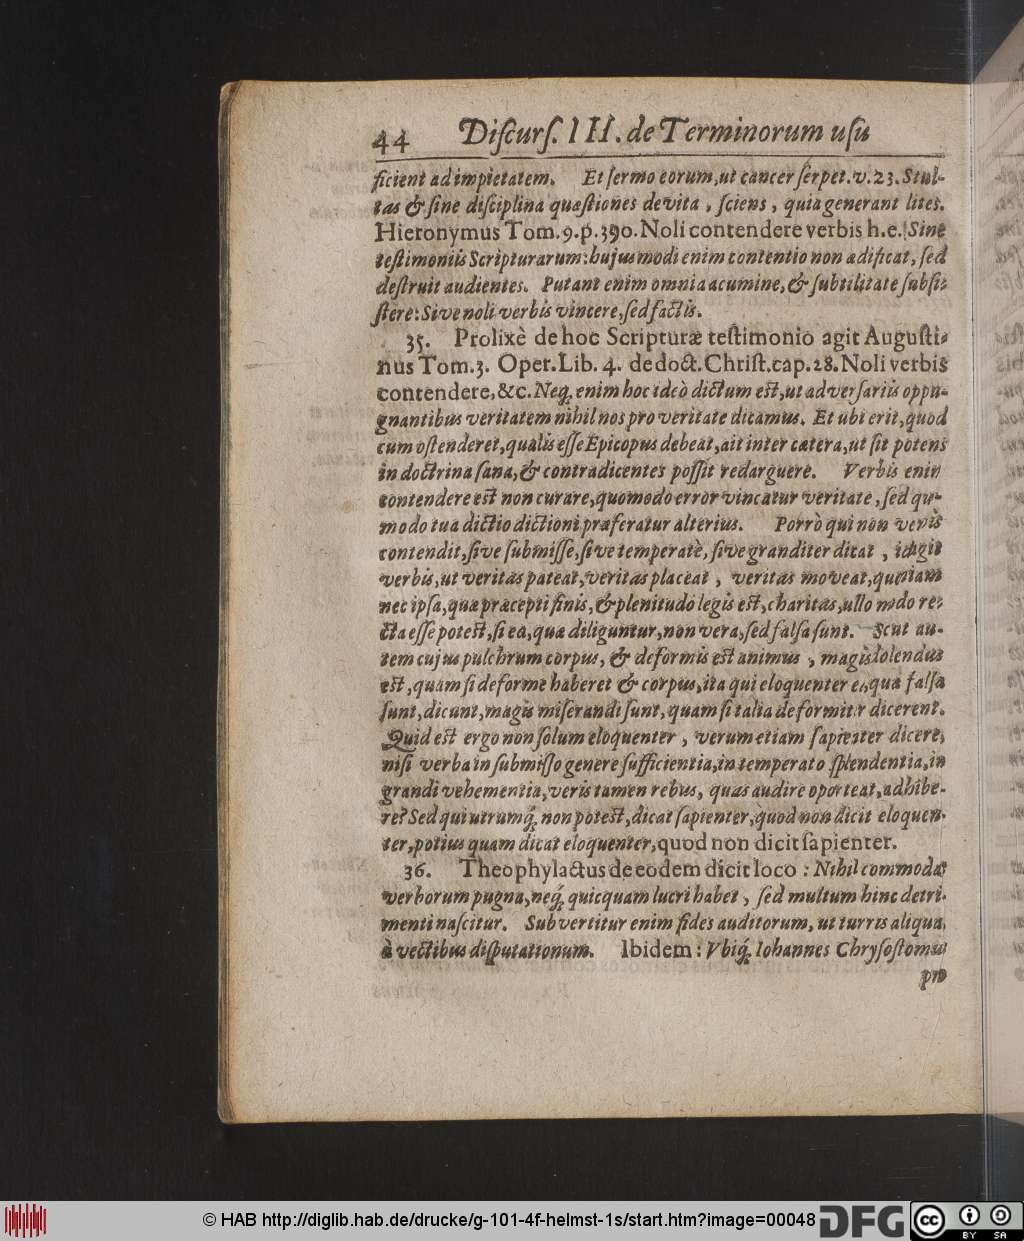 44 Diſcurſ. III. de Terminorum uſu
ficient ad impietatem. Et ſermo eorum, ut cancer ſerpet. v. 23. Stul-
tas & ſine diſciplina quæſtiones devita, ſciens, quia generant lites.
Hieronymus Tom. 9. p. 390. Noli contendere verbis h.e. Sine
teſtimoniis Scripturarum: hujusmodi enim contentio non ædificat, ſed
deſtruit audientes. Putant enim omnia acumine, & ſubtilitate ſubſi-
ſtere: Sive noli verbis vincere, ſed factis.
35. Prolixè de hoc Scripturæ teſtimonio agit Auguſti-
nus Tom. 3. Oper. Lib. 4. de doct. Chriſt. cap. 28. Noli verbis
contendere, &c. Neq́; enim hoc ideò dictum eſt, ut adverſariis oppu-
gnantibus veritatem nihil nos pro veritate dicamus. Et ubi erit, quod
cum oſtenderet, qualis eſſe Epicopus debeat, ait inter cætera, ut ſit potens
in doctrina ſana, & contradicentes poſſit redarguere. Verbis enim
contendere eſt non curare, quomodo error vincatur veritate, ſed quo-
modo tua dictio dictioni præferatur alterius. Porrò qui non verbis
contendit, ſive ſubmiſſe, ſive temperatè, ſive granditer dicat, id agit
verbis, ut veritas pateat, veritas placeat, veritas moveat, quoniam
nec ipſa, quæ præcepti finis, & plenitudo legis eſt, charitas, ullo modo re-
cta eſſe poteſt, ſi ea, quæ diliguntur, non vera, ſed falſa ſunt. Sicut au-
tem cujus pulchrum corpus, & deformis eſt animus, magis dolendus
eſt, quàm ſi deforme haberet & corpus, ita qui eloquenter ea, quæ falſa
ſunt, dicunt, magis miſerandi ſunt, quam ſi talia deformiter dicerent.
Quid eſt ergo non ſolum eloquenter, verum etiam ſapienter dicere,
niſi verba in ſubmiſſo genere ſufficientia, in temperato ſplendentia, in
grandi vehementia, veris tamen rebus, quas audire oporteat, adhibe-
re? Sed qui utrumq́; non poteſt, dicat ſapienter, quod non dicit eloquen-
ter, potius quam dicat eloquenter, quod non dicit ſapienter.
36. Theophylactus de eodem dicit loco: Nihil commodat
verborum pugna, neq́; quicquam lucri habet, ſed multum hinc detri-
menti naſcitur. Subvertitur enim fides auditorum, ut turris aliqua,
à vectibus diſputationum. Ibidem: Vbiq́; Iohannes Chryſoſtomus
pro
© HAB http://diglib.hab.de/drucke/g-101-4f-helmst-1s/start.htm?image=00048 DFG cc BY SA